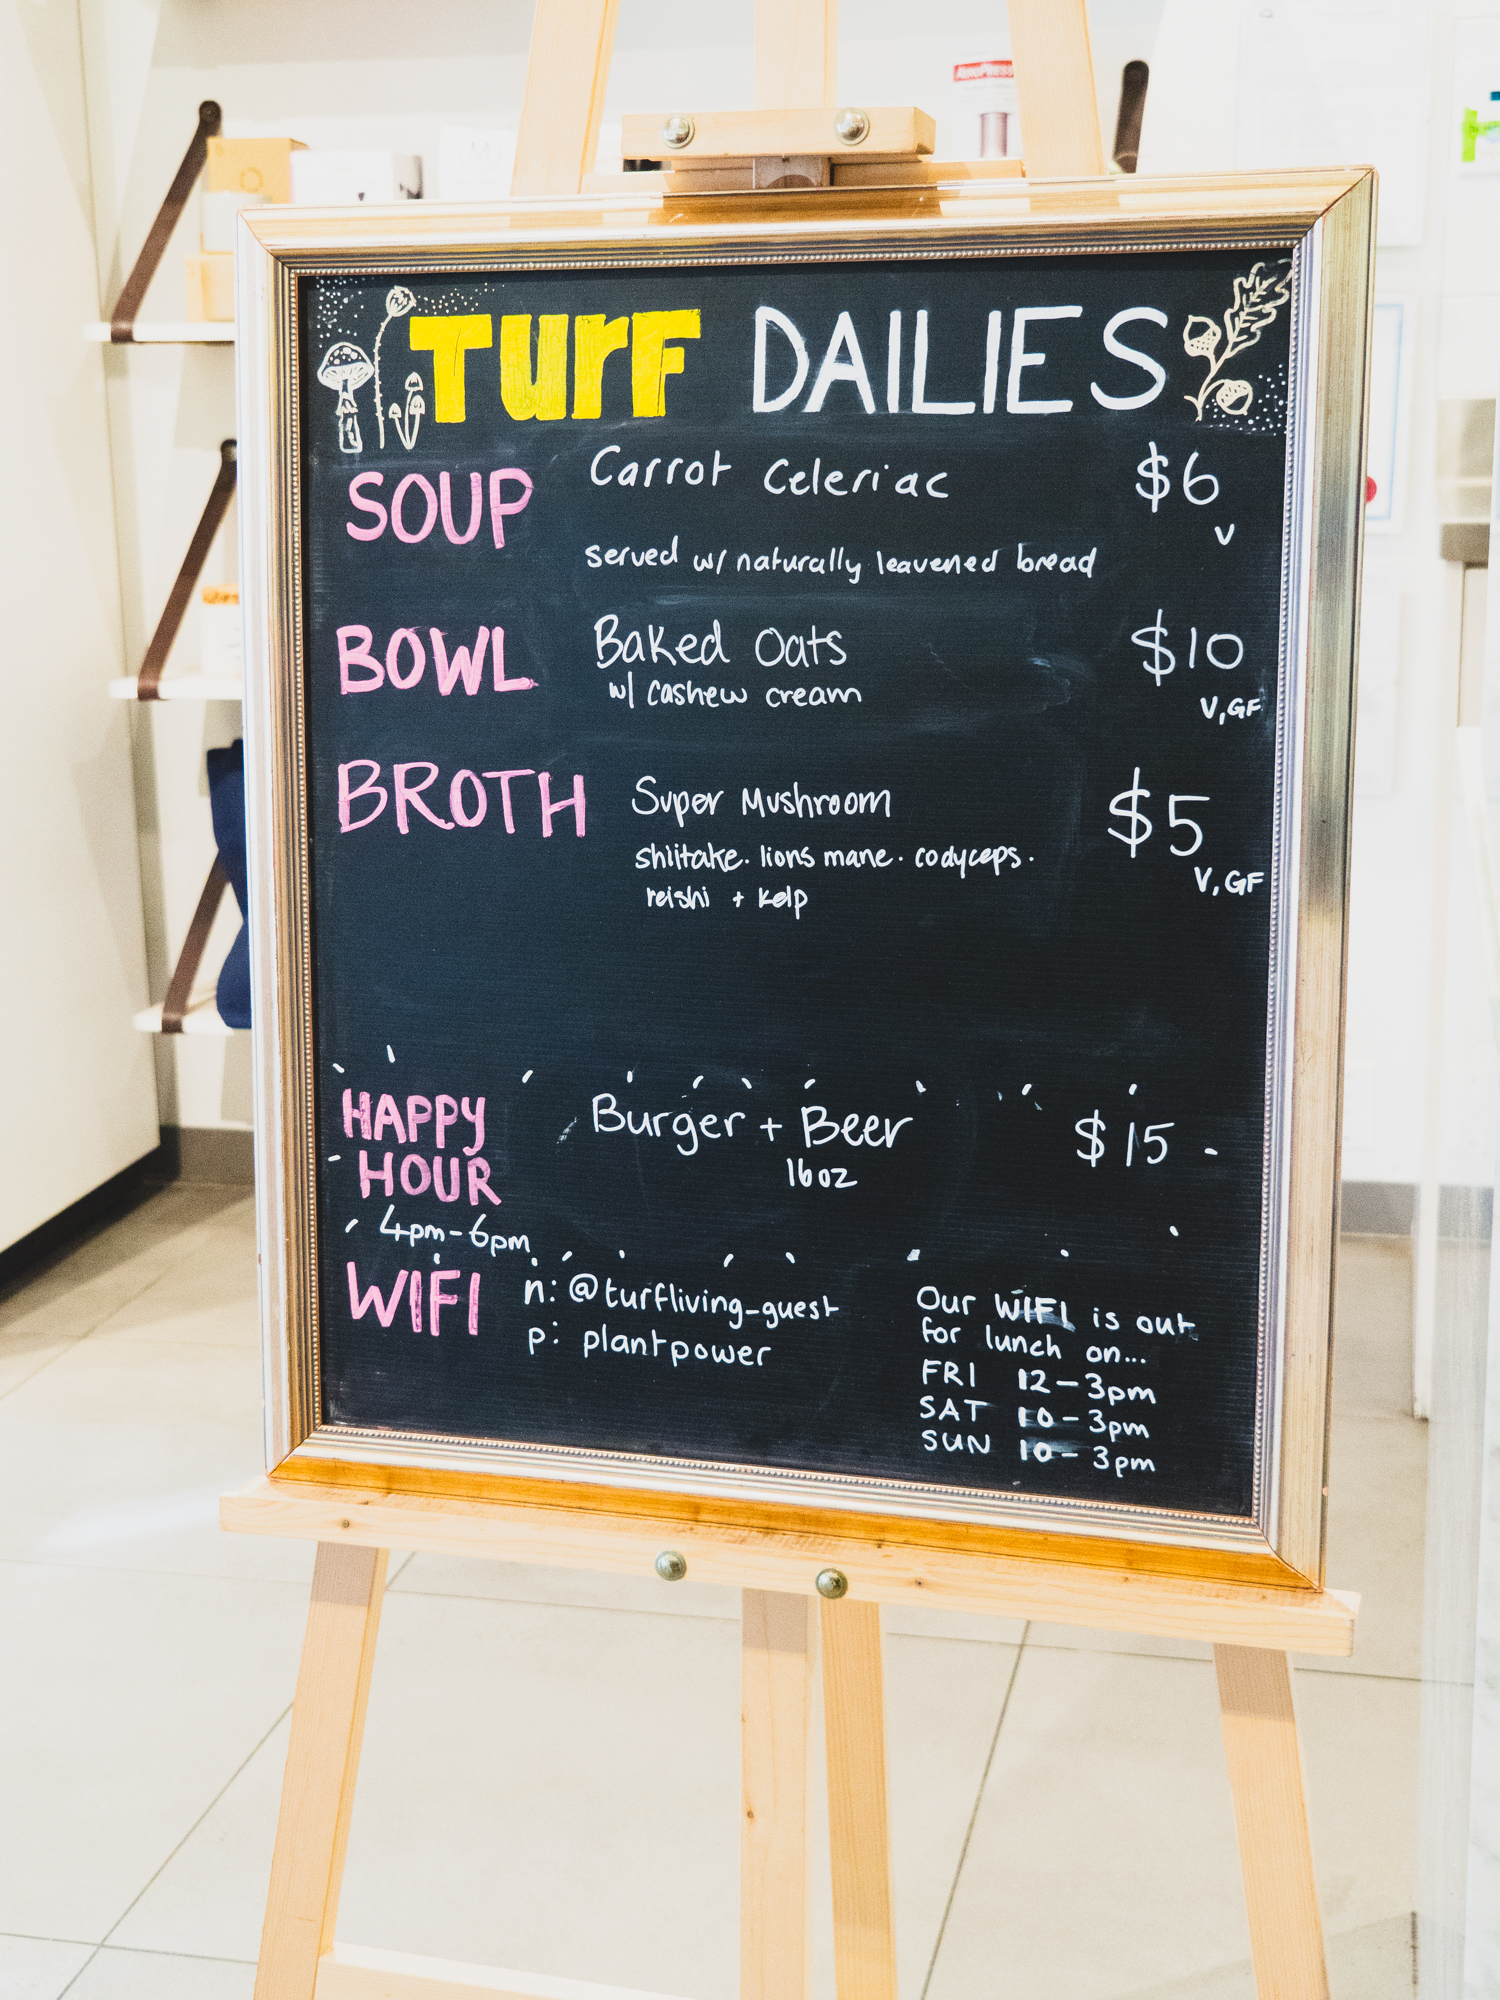 AeroPress
TURF DAILIES
SOUP Carrot Celeriac $6
V
served w/ naturally leavened bread
BOWL Baked Oats $10
w/ cashew cream
V, GF
BROTH Super Mushroom $5
shiitake. lions mane. codyceps.
V, GF
reishi + kelp
HAPPY Burger + Beer $15
HOUR 16oz
4pm-6pm
WIFI n: @turfliving_guest
p: plantpower
Our WIFI is out
for lunch on...
FRI 12-3pm
SAT 10-3pm
SUN 10-3pm